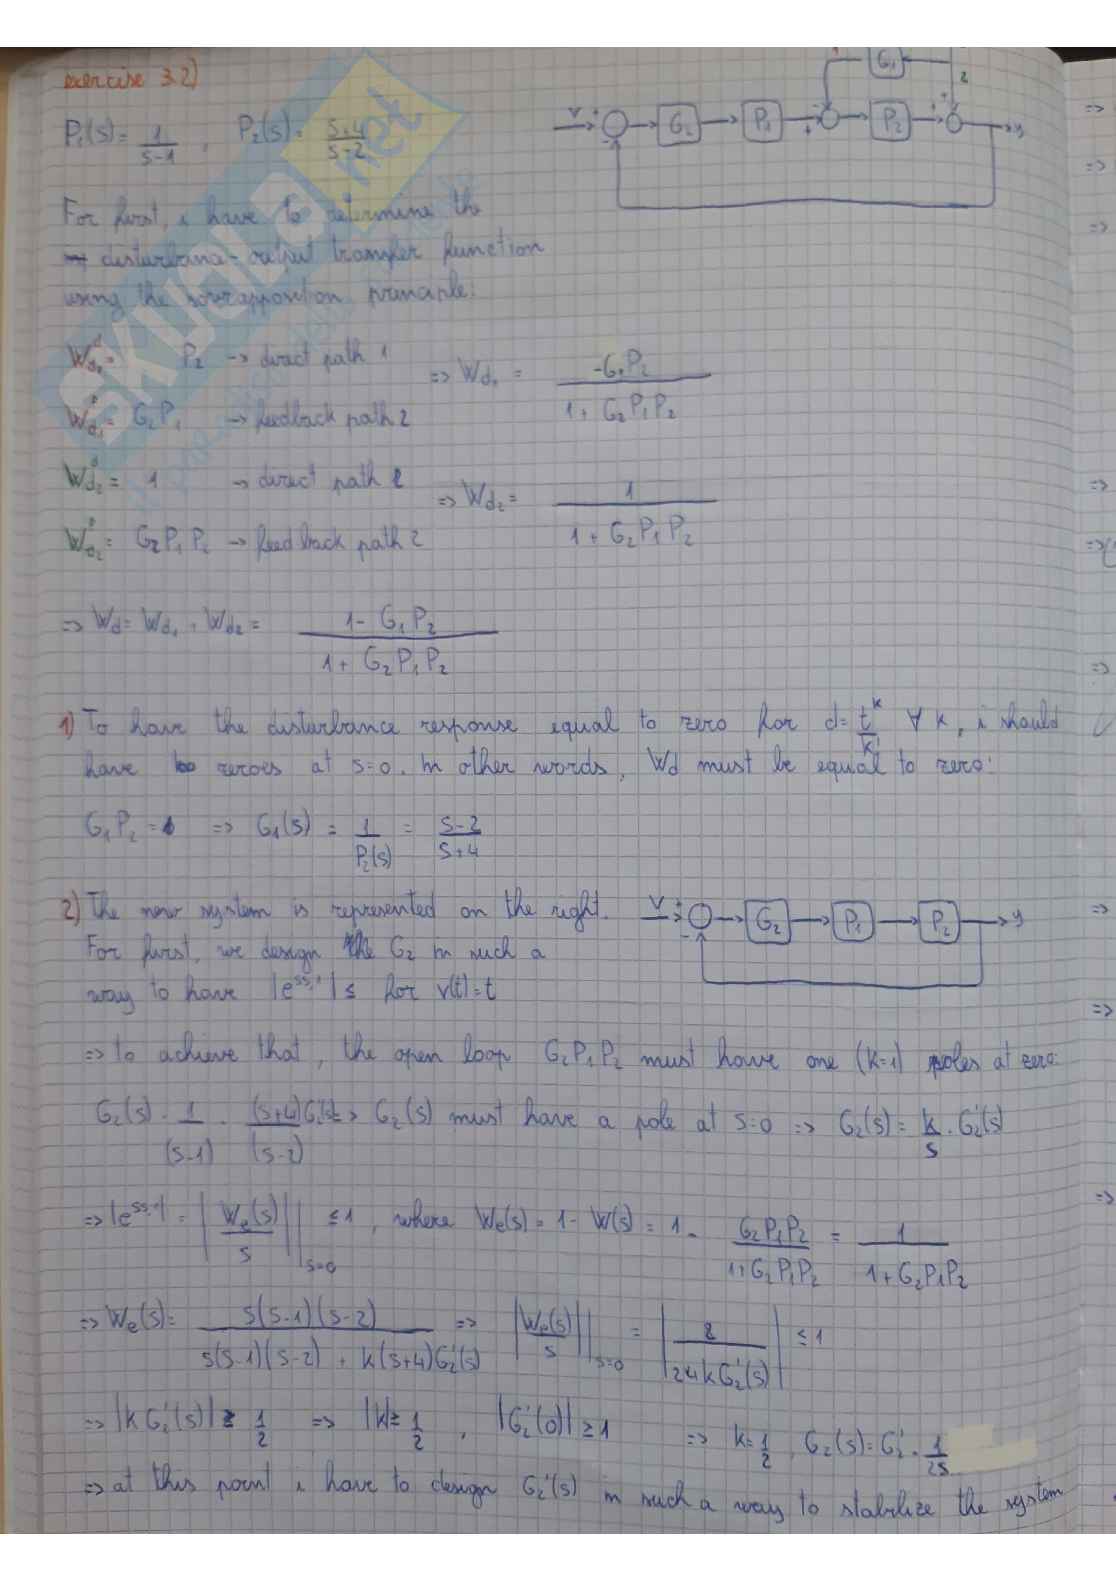 exercise 3.2)
P₁(s) = 1/(s-1) , P₂(s) = (s+4)/(s-2)
G₁
2
v + - G₂ P₁ + - P₂ + + y
For first, i have to determine the
disturbance-output transfer function
using the sovrapposition principle:
Wd₁ = P₂ -> direct path 1 => Wd₁ = -G₁P₂/(1 + G₂P₁P₂)
Wd₁ = G₂P₁ -> feedback path 2
Wd₂ = 1 -> direct path 2 => Wd₂ = 1/(1 + G₂P₁P₂)
Wd₂ = G₂P₁P₂ -> feedback path 2
=> Wd = Wd₁ + Wd₂ = (1 - G₁P₂)/(1 + G₂P₁P₂)
1) To have the disturbance response equal to zero for d = t^k/k! ∀ k, i should
have zeroes at s=0. In other words, Wd must be equal to zero:
G₁P₂ = 1 => G₁(s) = 1/P₂(s) = (s-2)/(s+4)
2) The new system is represented on the right. v + - G₂ P₁ P₂ y
For first, we design the G₂ in such a
way to have |e^ss,1| ≤ for v(t)=t
=> to achieve that, the open loop G₂P₁P₂ must have one (k=1) poles at zero:
G₂(s) · 1/(s-1) · (s+4)/(s-2) G₂'(s) => G₂(s) must have a pole at s=0 => G₂(s) = k/s · G₂'(s)
=> |e^ss,1| = |We(s)/s| |s=0 ≤ 1 , where We(s) = 1 - W(s) = 1 - G₂P₁P₂/(1+G₂P₁P₂) = 1/(1+G₂P₁P₂)
=> We(s) = s(s-1)(s-2)/(s(s-1)(s-2) + k(s+4)G₂'(s)) => |We(s)/s| |s=0 = |2/(4kG₂'(s))| ≤ 1
=> |kG₂'(s)| ≥ 1/2 => |k| ≥ 1/2 , |G₂'(0)| ≥ 1 => k = 1/2 , G₂(s) = G₂' · 1/2s
=> at this point i have to design G₂'(s) in such a way to stabilize the system